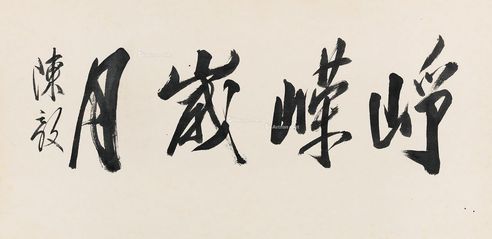 崢嶸歲月
陳毅